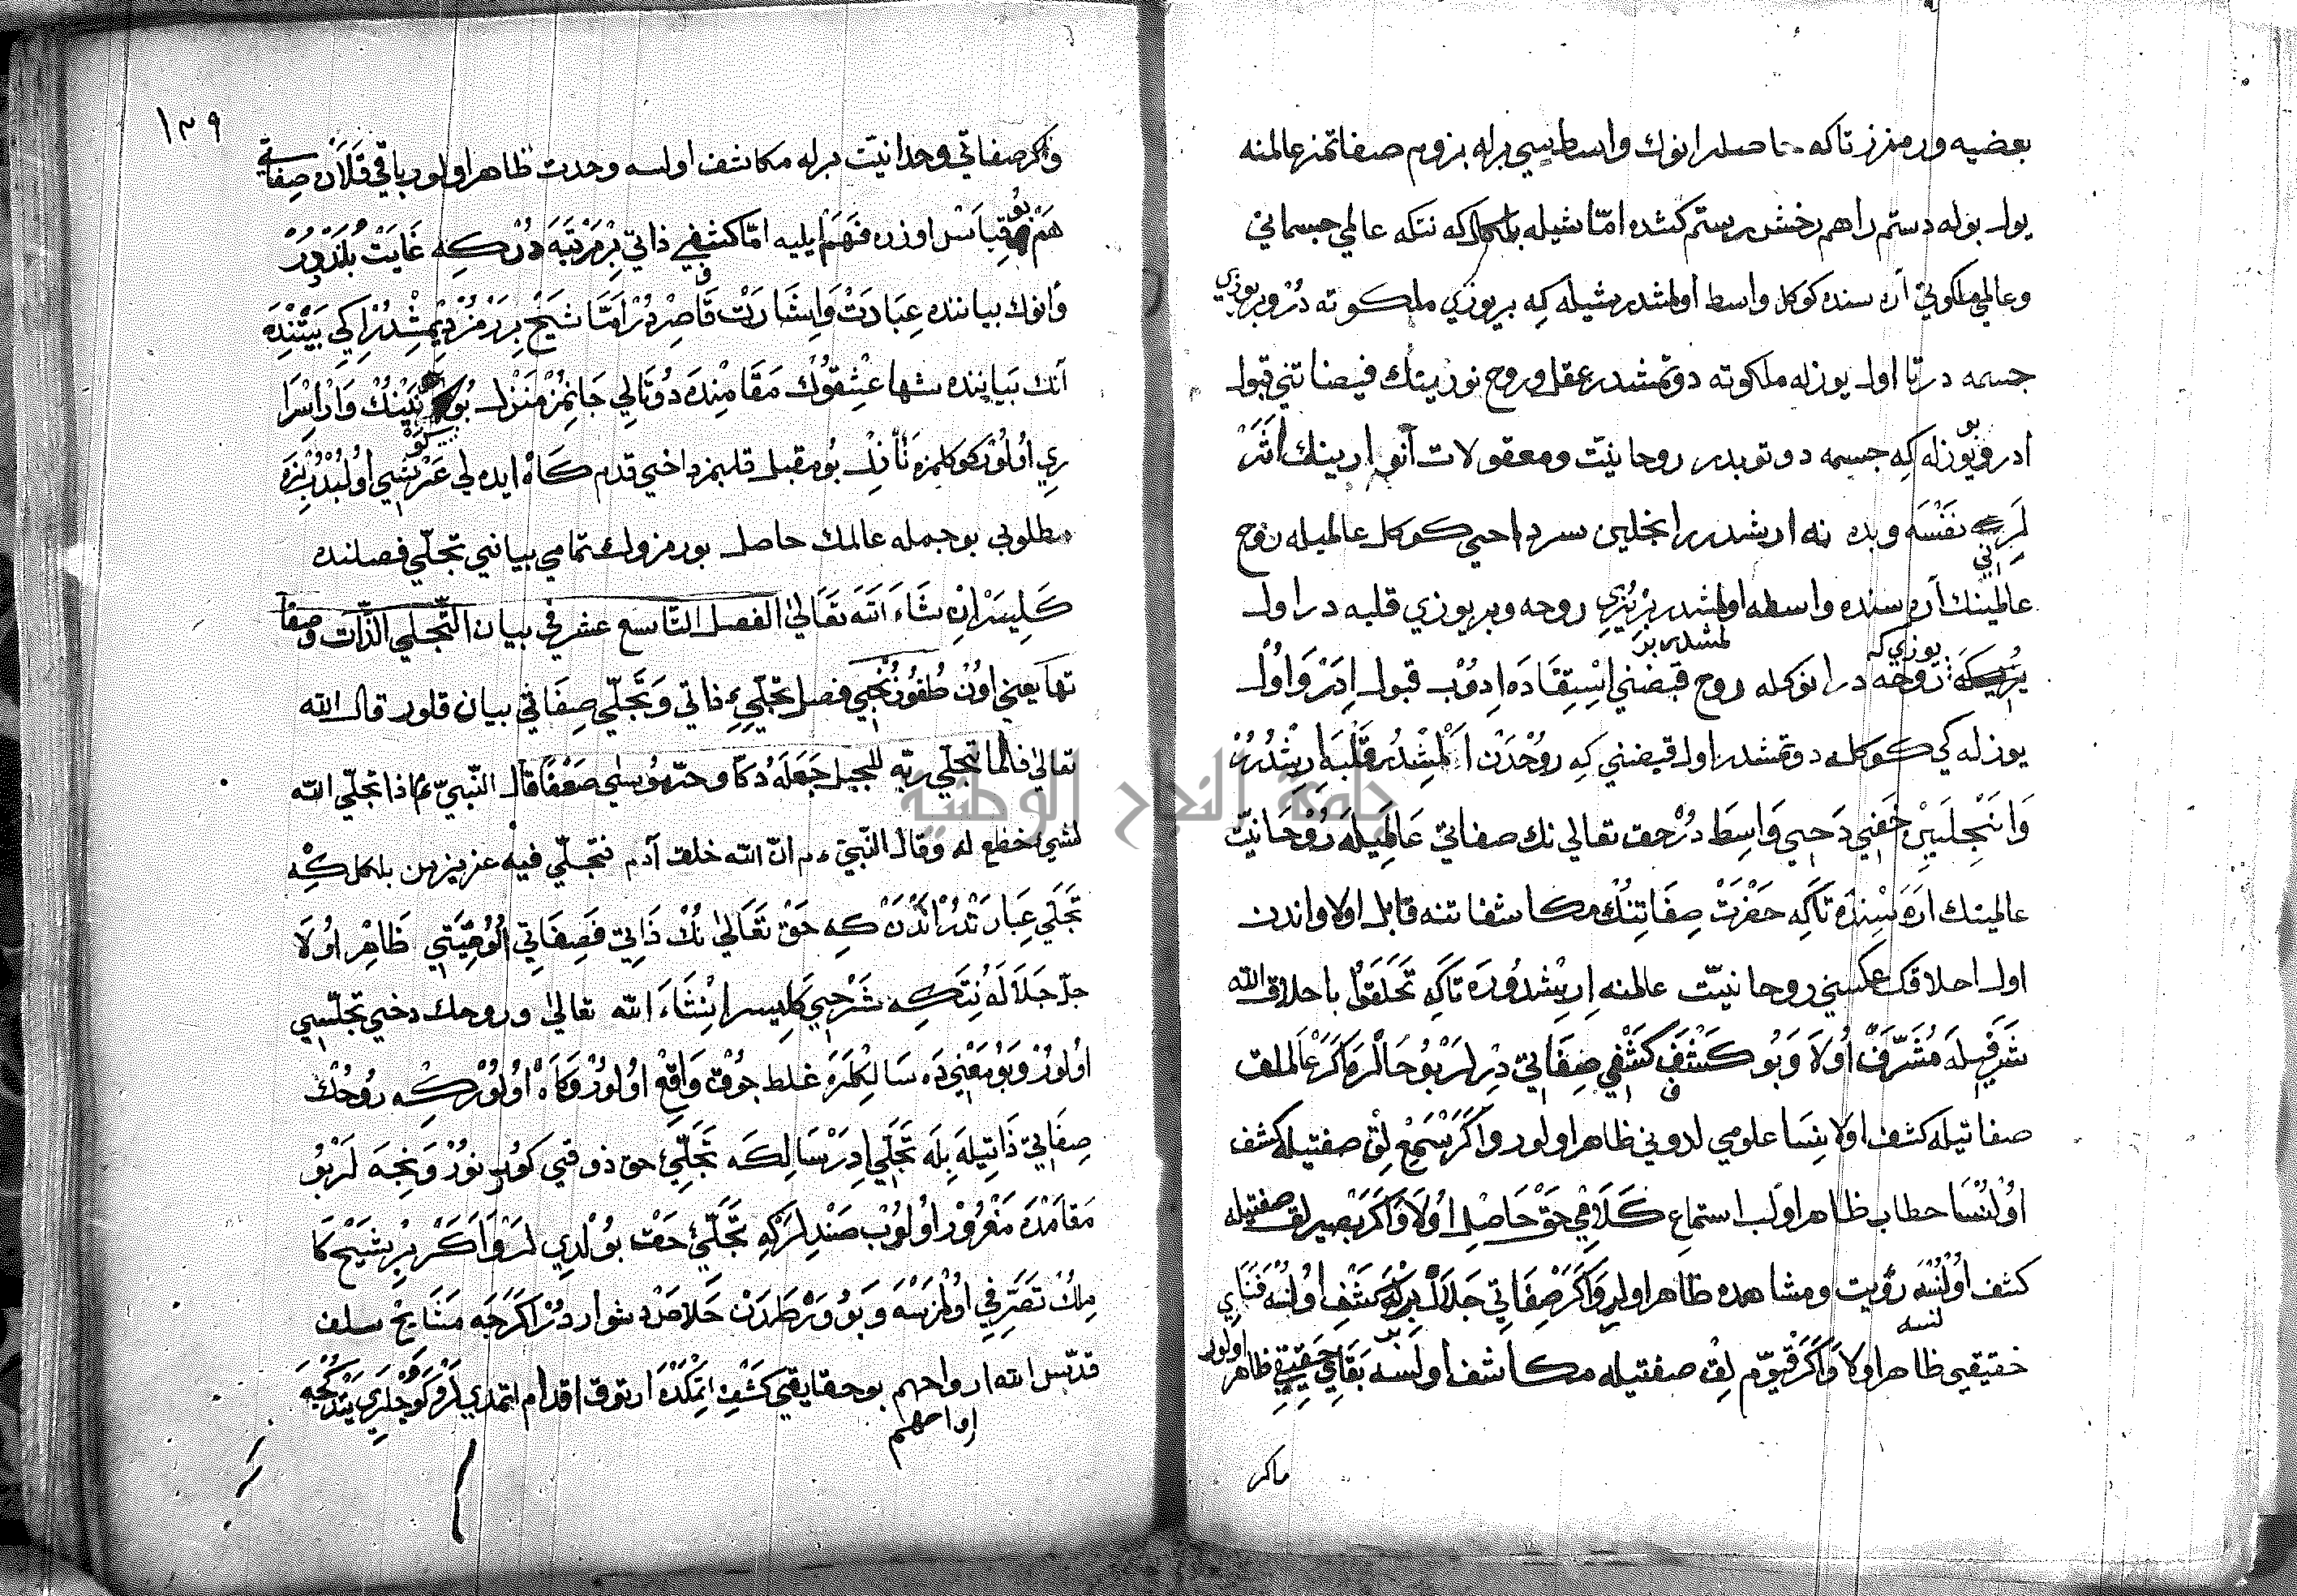 بعضيه ورمزز تاكه حاصلدر انوك واسطه سي برله بزوم صفاتمز عالمنه
يول بوله دستم راهم رخش رستم كشده امّا شيله بلكل كه نتكه عالمي جسماني
وعالمي ملكوتي آره سنده كوكل واسط اولمشدر شيله كه بر يوزي ملكوته دُرْ وبر يوزي
جسمه در تا اول يوزله ملكوته دوتمشدر عقل وروح نور يتك فيضاتني قبول
ادر و بو يوزله كه جسمه دوتوبدر روحانيّت ومعقولات آنوارينك اَثَرْ
لَرِني نَفْسَه وبدنه ارشدرر انجلين سرداحي كوكل عالميله روح
عالمينك آره سنده واسطه اولمشدر بر يوزي روحه وبر يوزي قلبه در اول
يوزي كه رُوحَه در انوكله روح فيضني اِسْتِفَادَه اِدُوبْ قبول اِدَرْ وَاُولْ
يوزله كي كوكله دوتمشدر اول فيضني كه رُوحْدَنْ اَلْمِشْدُر قَلْبَه اِرِشْدُرُرْ
وَاَنْجِلَيِنْ خَفِي دَحِي وَاسِطَ دُرْ حق تعالي نك صفاتي عَالَمِيلَه رُوْحَانيّت
عالمينك اَرَه سِنْدَه تَاكِه حَضْرَتْ صِفَاتِنُكْ مكاشفاتنه قابل اولا واندن
اول احلاقك عكسني روحانيّت عالمنه اِرِشْدُورَه تَاكِه تَخَلَقُوا باحلاق الله
شَرَفِيلَه مُشَرَّفْ اُولَا وَبُو كَشْفَ كَشْفِي صِفَاتِيّ دِرْلَرْ بُو حَالْدَه وَاكَرْ عَالملق
صفاتيله كشف اولا نِسَا علومي لدوني ظاهر اولور واكَرْ سَمِيعْ لِقْ صفتيله كشف
اُولُنْسَا حطاب ظاهر اولب استماع كَلَامِي حَقْ حَاصِل اُولَا وَاكَرْ بَصِيرلق صفتيله
كشف اُولُنْسَه رؤيت ومشاهده ظاهر اولر وَاكَرْ صِفَاتِي جَلَالْ بِرْلَه كَشْفِ اُولُنْسَه فَنَاي
حقيقي ظاهر اولا وَاكَرْ قيّوم لِقْ صفتيله مكاشف اولسه بَقَاي حَقِيقِي ظاهر اولور
ماكر
١٣٩
وَاكر صفاتي وحدانيّت برله مكاشف اولسه وحدت ظاهر اولور باقي قَلَان صِفَاتي
هَمْ بو قِيَاسْ اوزره فَهَمْ ايليه امّا كشفي ذاتي بِرْ مَرْتَبَه دُرْ كِه غَايَتْ بُلَنْدْدُرْ
وَانوك بياننده عِبَارَتْ وَاِشَارَتْ قَاصِرْدُرْ اَمَّا شَيْخْ بِر رَمْزْ دِيمِشْدُرْ اِكِي بَيْتْدَه
آنك بَيَاننده شها عِشْقُوكْ مَقَامِنْدَه دُوتَالي جَانِمُزْ مَنْزل
مطلوبي بو جمله عالمك حاصل بو رمزوك تمامي بياني تجلّي فصلنده
كَلِيسَرْ اِنْ شَاءَ اللّه تَعَالى الفصل التّاسع عشر في بيان التّجلي الذّات وصفا
تها يعني اونْ طُقُوزُنْجِي فصل تجلّيِ ذاتي وَتجَلّي صِفَاتي بيان قلور قال الله
تعالى فلمّا تجلّى ربّه للجبل جَعَلَهُ دَكّا وخرّ مُوسى صَعْقًا قال النّبيّ عم اذا تجلّى الله
لشئ خضع له وقال النّبيّ عم انّ الله خلق آدم فتجلّى فيه عزيز من بلكل كِه
تَجَلّي عِبَارَتْدُرْ اَنْدَنْ كِه حَقْ تَعَالى نُكْ ذَاتِي وَصِفَاتِي اُلُوهِيّتي ظَاهِر اُولَا
جلّ جَلَالَه نِتَكِه شَرْحِي كَلِيسر اِنْشَاءَ الله تعالى وروحك دخي تجلّيسي
اوُلورْ وَبُو مَعْنِيدَه سَالِكْلَرَه غلط جوق وَاقِعْ اُولورْ وَكَاهْ اُولورْ كِه رُوحُكْ
صِفَاتيّ ذَاتِيلَه بِلَه تَجَلّي اِدَرْ سَالِكَه تَجَلّيِ حق ذوقني كوُسْتُررْ وَنِجَه لَرْ بُو
مَقَامْدَه مَغْرُورْ اُولُوبْ صَنْدِيلَرْ كِه تَجَلّيِ حَقْ بُولْدِيلَرْ وَاكَرْ بِر شَيْخ كَا
مِلُكْ تَصَرّفي اُولْمَزْسَه وَبُو وَرْطَدَنْ خَلَاصْ دشوار دُرْ اكَرْجَه مَشَايخْ سلف
قدّس الله ارواحهم بو حقايقي كَشْفْ اِتْمَكْدَه ارتوق اقدام اتمديلَرْ
ارواحهم